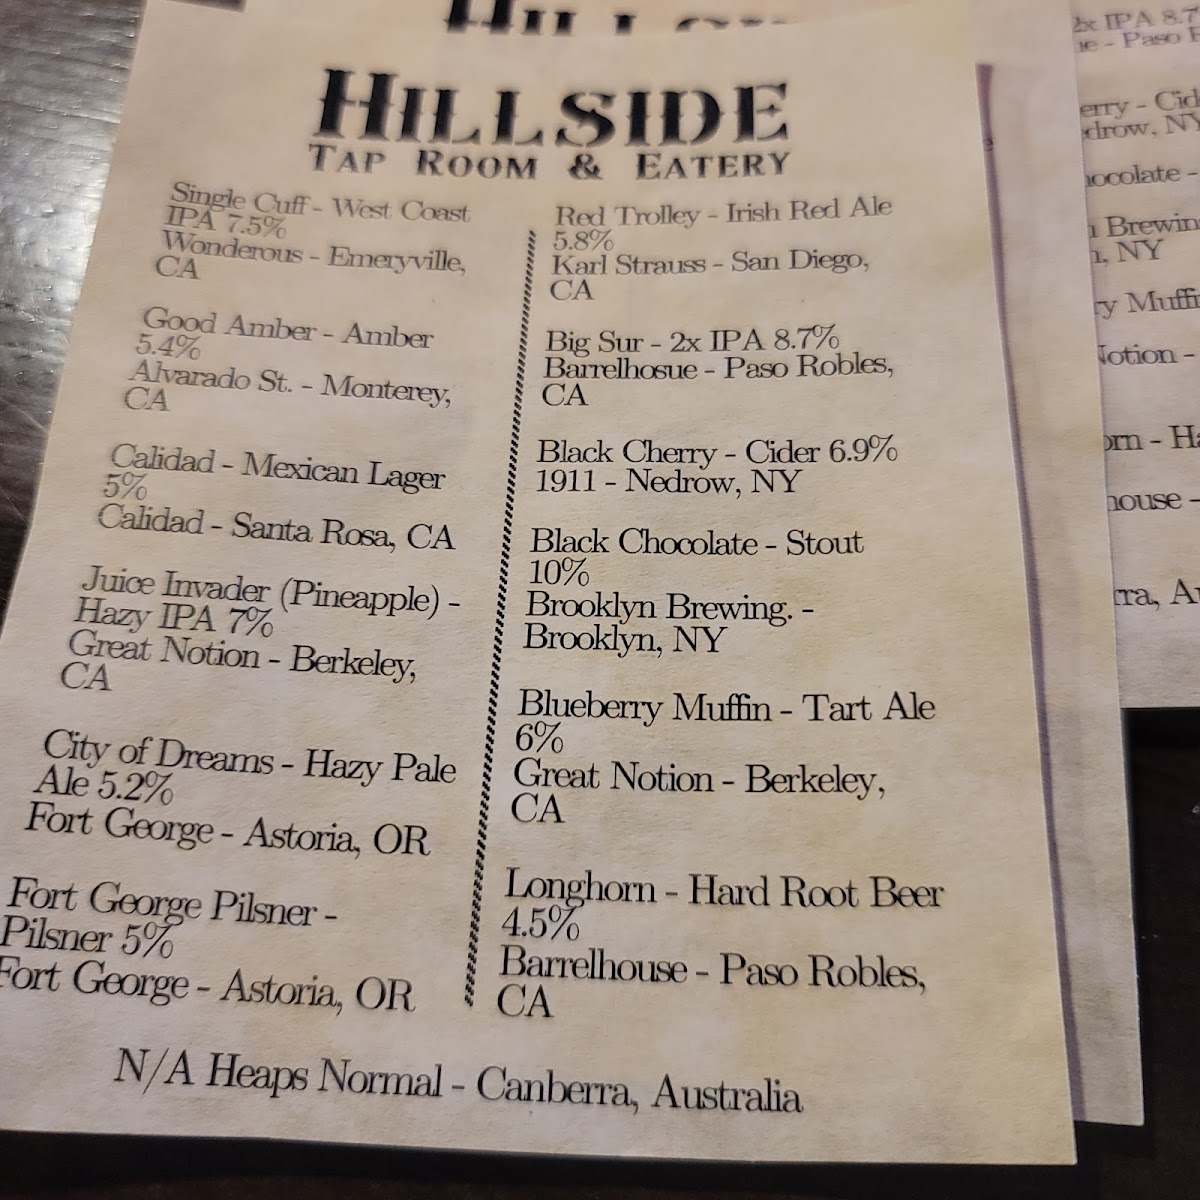 HILLSIDE
TAP ROOM & EATERY
Single Cuff - West Coast
IPA 7.5%
Wonderous - Emeryville,
CA
Good Amber - Amber
5.4%
Alvarado St. - Monterey,
CA
Calidad - Mexican Lager
5%
Calidad - Santa Rosa, CA
Juice Invader (Pineapple) -
Hazy IPA 7%
Great Notion - Berkeley,
CA
City of Dreams - Hazy Pale
Ale 5.2%
Fort George - Astoria, OR
Fort George Pilsner -
Pilsner 5%
Fort George - Astoria, OR
Red Trolley - Irish Red Ale
5.8%
Karl Strauss - San Diego,
CA
Big Sur - 2x IPA 8.7%
Barrelhosue - Paso Robles,
CA
Black Cherry - Cider 6.9%
1911 - Nedrow, NY
Black Chocolate - Stout
10%
Brooklyn Brewing. -
Brooklyn, NY
Blueberry Muffin - Tart Ale
6%
Great Notion - Berkeley,
CA
Longhorn - Hard Root Beer
4.5%
Barrelhouse - Paso Robles,
CA
N/A Heaps Normal - Canberra, Australia
2x IPA 8.7
- Paso
drow, NY
ocolate -
Brewin
, NY
y Muffi
Notion -
orn - Ha
house -
rra, Au